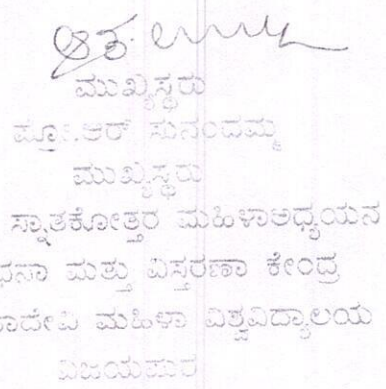 ಮುಖ್ಯಸ್ಥರು
ಪ್ರೊ.ಆರ್ ಸುನಂದಮ್ಮ
ಮುಖ್ಯಸ್ಥರು
ಸ್ನಾತಕೋತ್ತರ ಮಹಿಳಾಅಧ್ಯಯನ
ಧನಾ ಮತ್ತು ವಿಸ್ತರಣಾ ಕೇಂದ್ರ
ಾದೇವಿ ಮಹಿಳಾ ವಿಶ್ವವಿದ್ಯಾಲಯ
ವಿಜಯಪುರ